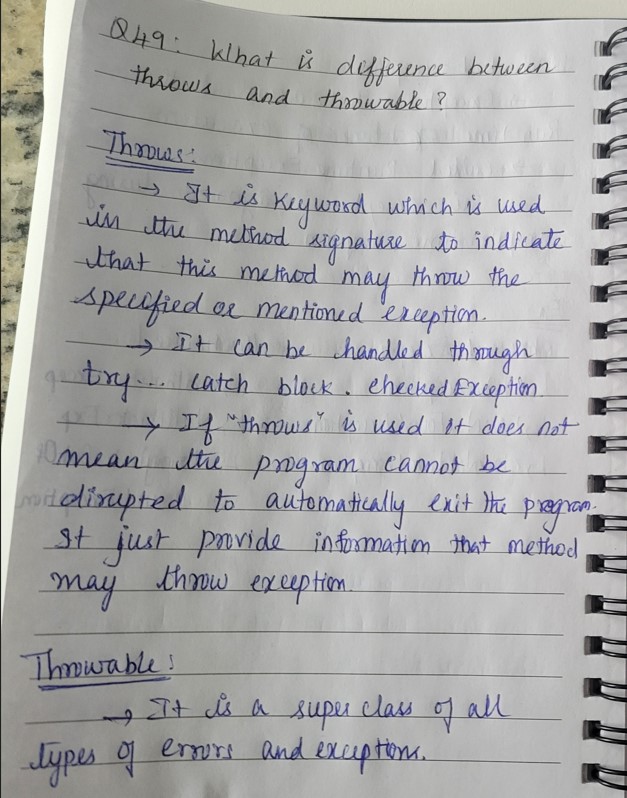 Q49: What is difference between
throws and throwable?
Throws:
→ It is keyword which is used
in the method signature to indicate
that this method may throw the
specified or mentioned exception.
→ It can be handled through
try... catch block. checked Exception
→ If "throws" is used it does not
mean the program cannot be
disrupted to automatically exit the program.
It just provide information that method
may throw exception.
Throwable:
→ It is a super class of all
types of errors and exceptions.